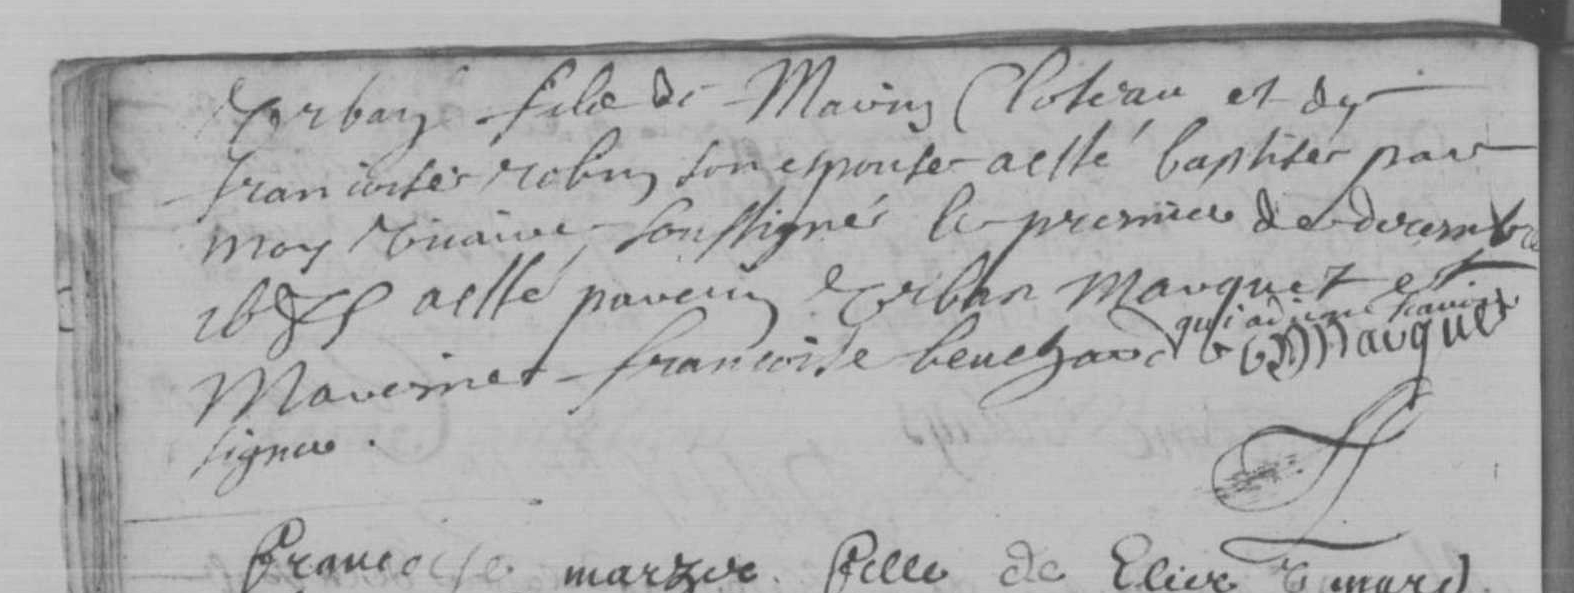 Urban fils de Mavin Cloteau et de
francoise robin son espouse a esté baptiser par
moy vicaire soussigné le premier de decembre
a esté parein Urban Mauquet et
Mareinne francoise beuchard qui a
signer.
Mauquet
Francoise marzer fille de Elier